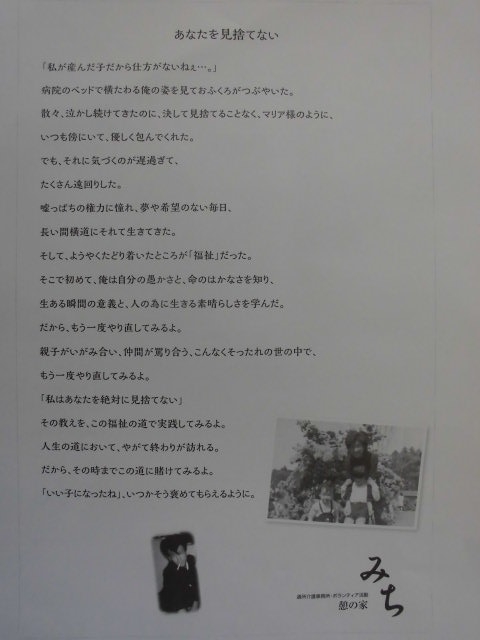 あなたを見捨てない
「私が産んだ子だから仕方がないねぇ…。」
病院のベッドで横たわる俺の姿を見ておふくろがつぶやいた。
散々、泣かし続けてきたのに、決して見捨てることなく、マリア様のように、
いつも傍にいて、優しく包んでくれた。
でも、それに気づくのが遅過ぎて、
たくさん遠回りした。
嘘っぱちの権力に憧れ、夢や希望のない毎日、
長い間横道にそれて生きてきた。
そして、ようやくたどり着いたところが「福祉」だった。
そこで初めて、俺は自分の愚かさと、命のはかなさを知り、
生ある瞬間の意義と、人の為に生きる素晴らしさを学んだ。
だから、もう一度やり直してみるよ。
親子がいがみ合い、仲間が罵り合う、こんなくそったれの世の中で、
もう一度やり直してみるよ。
「私はあなたを絶対に見捨てない」
その教えを、この福祉の道で実践してみるよ。
人生の道において、やがて終わりが訪れる。
だから、その時までこの道に賭けてみるよ。
「いい子になったね」、いつかそう褒めてもらえるように。
みち
通所介護事業所・ボランティア活動
憩の家